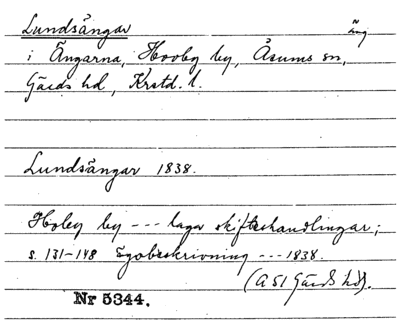 Lundsängar äng
i Ängarna, Hovby by, Åsums sn,
Gärds hd, Krstd. l.
Lundsängar 1838.
Hoby by --- laga skifteshandlingar;
s. 131-148 Egobeskrivning --- 1838.
(A 51 Gärds hd).
Nr 5344.